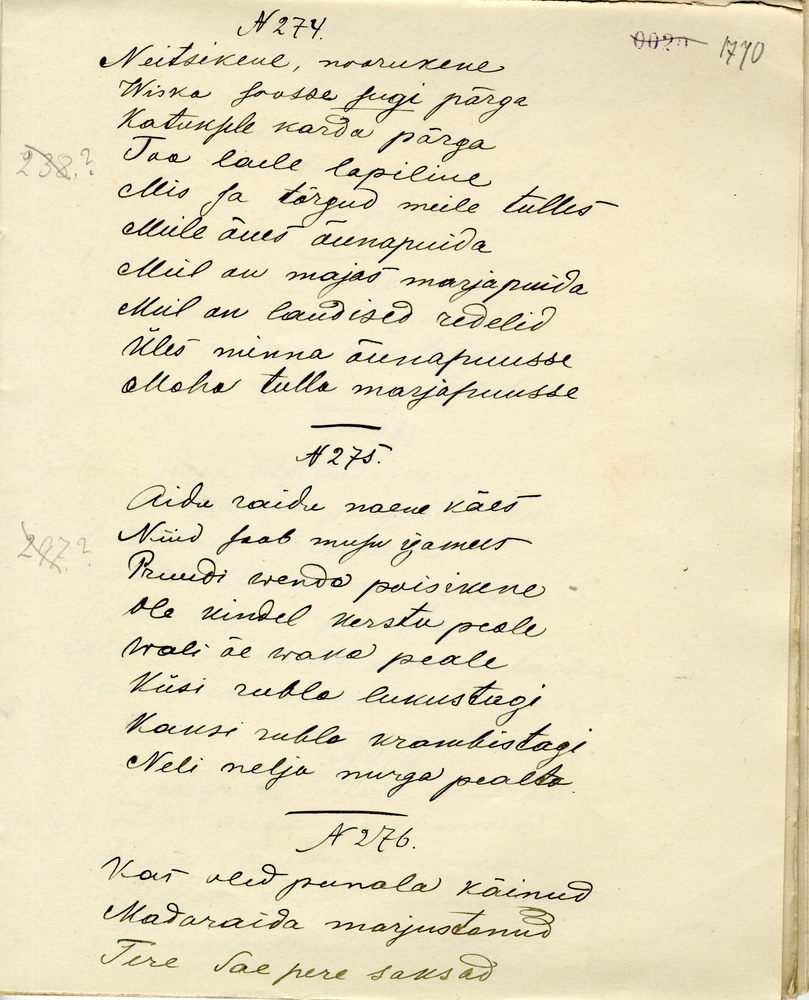 N 274.
0020 1770
Neitsikene, noorukene
Wiska soosse sugi pärga
Katuksele karda pärga
238.?
Too laele lapiline
Mis sa tõrgud meile tulles
Meile õues õunapuida
Meil on majas marjapuida
Meil on laudised redelid
Üles minna õunapuusse
Maha tulla marjapuusse
N 275.
Aidu raidu naene käes
Nüüd saab muju isameest
297?
Pruudi wenda poisikene
Ole kindel kerstu peale
Wali õe waka peale
Küsi rubla lukustagi
Kaksi rubla krambistagi
Neli nelja nurga pealta
N 276.
Kas oled punala käinud
Madaraida marjustanud
Tere Sae pere saksad